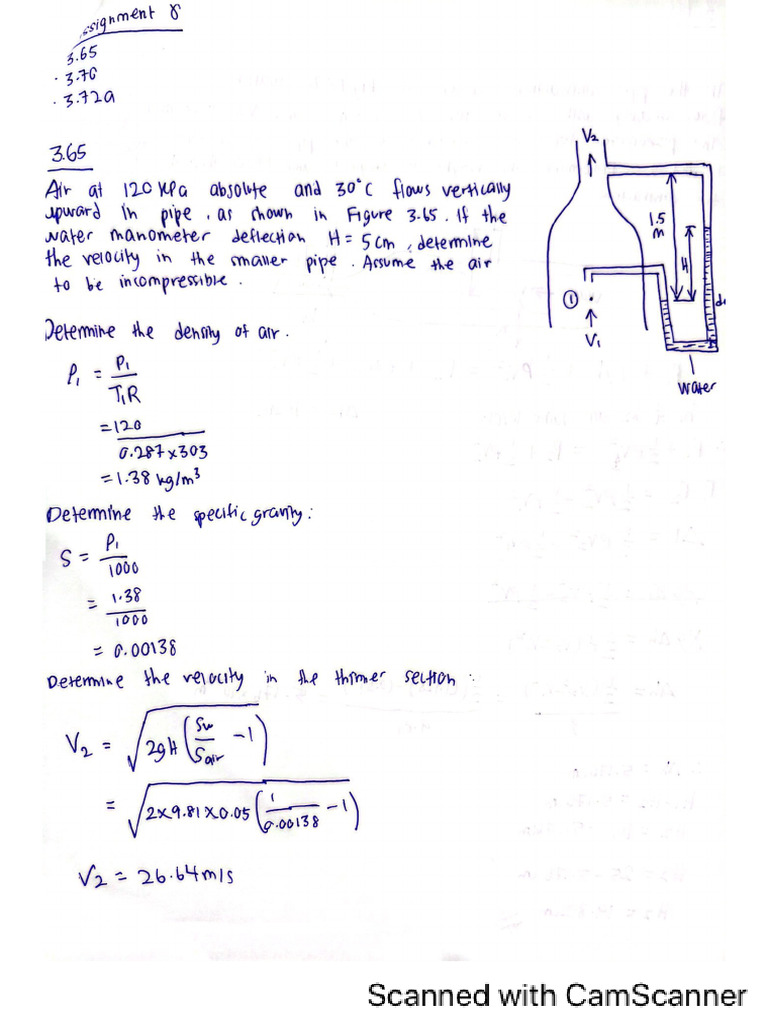 ssignment 8
3.65
· 3.70
· 3.72a
3.65
Air at 120 kPa absolute and 30°C flows vertically
upward in pipe, as shown in Figure 3.65. If the
water manometer deflection H = 5cm, determine
the velocity in the smaller pipe. Assume the air
to be incompressible.
V2
1.5
m
H
①
V1
water
Determine the density of air.
P1 = P1 / T1R
= 120 / 0.287 x 303
= 1.38 kg/m³
Determine the specific gravity:
S = P1 / 1000
= 1.38 / 1000
= 0.00138
Determine the velocity in the thinner section:
V2 = √(2gH (Sw / Sair - 1))
= √(2x9.81x0.05 (1 / 0.00138 - 1))
V2 = 26.64m/s
Scanned with CamScanner